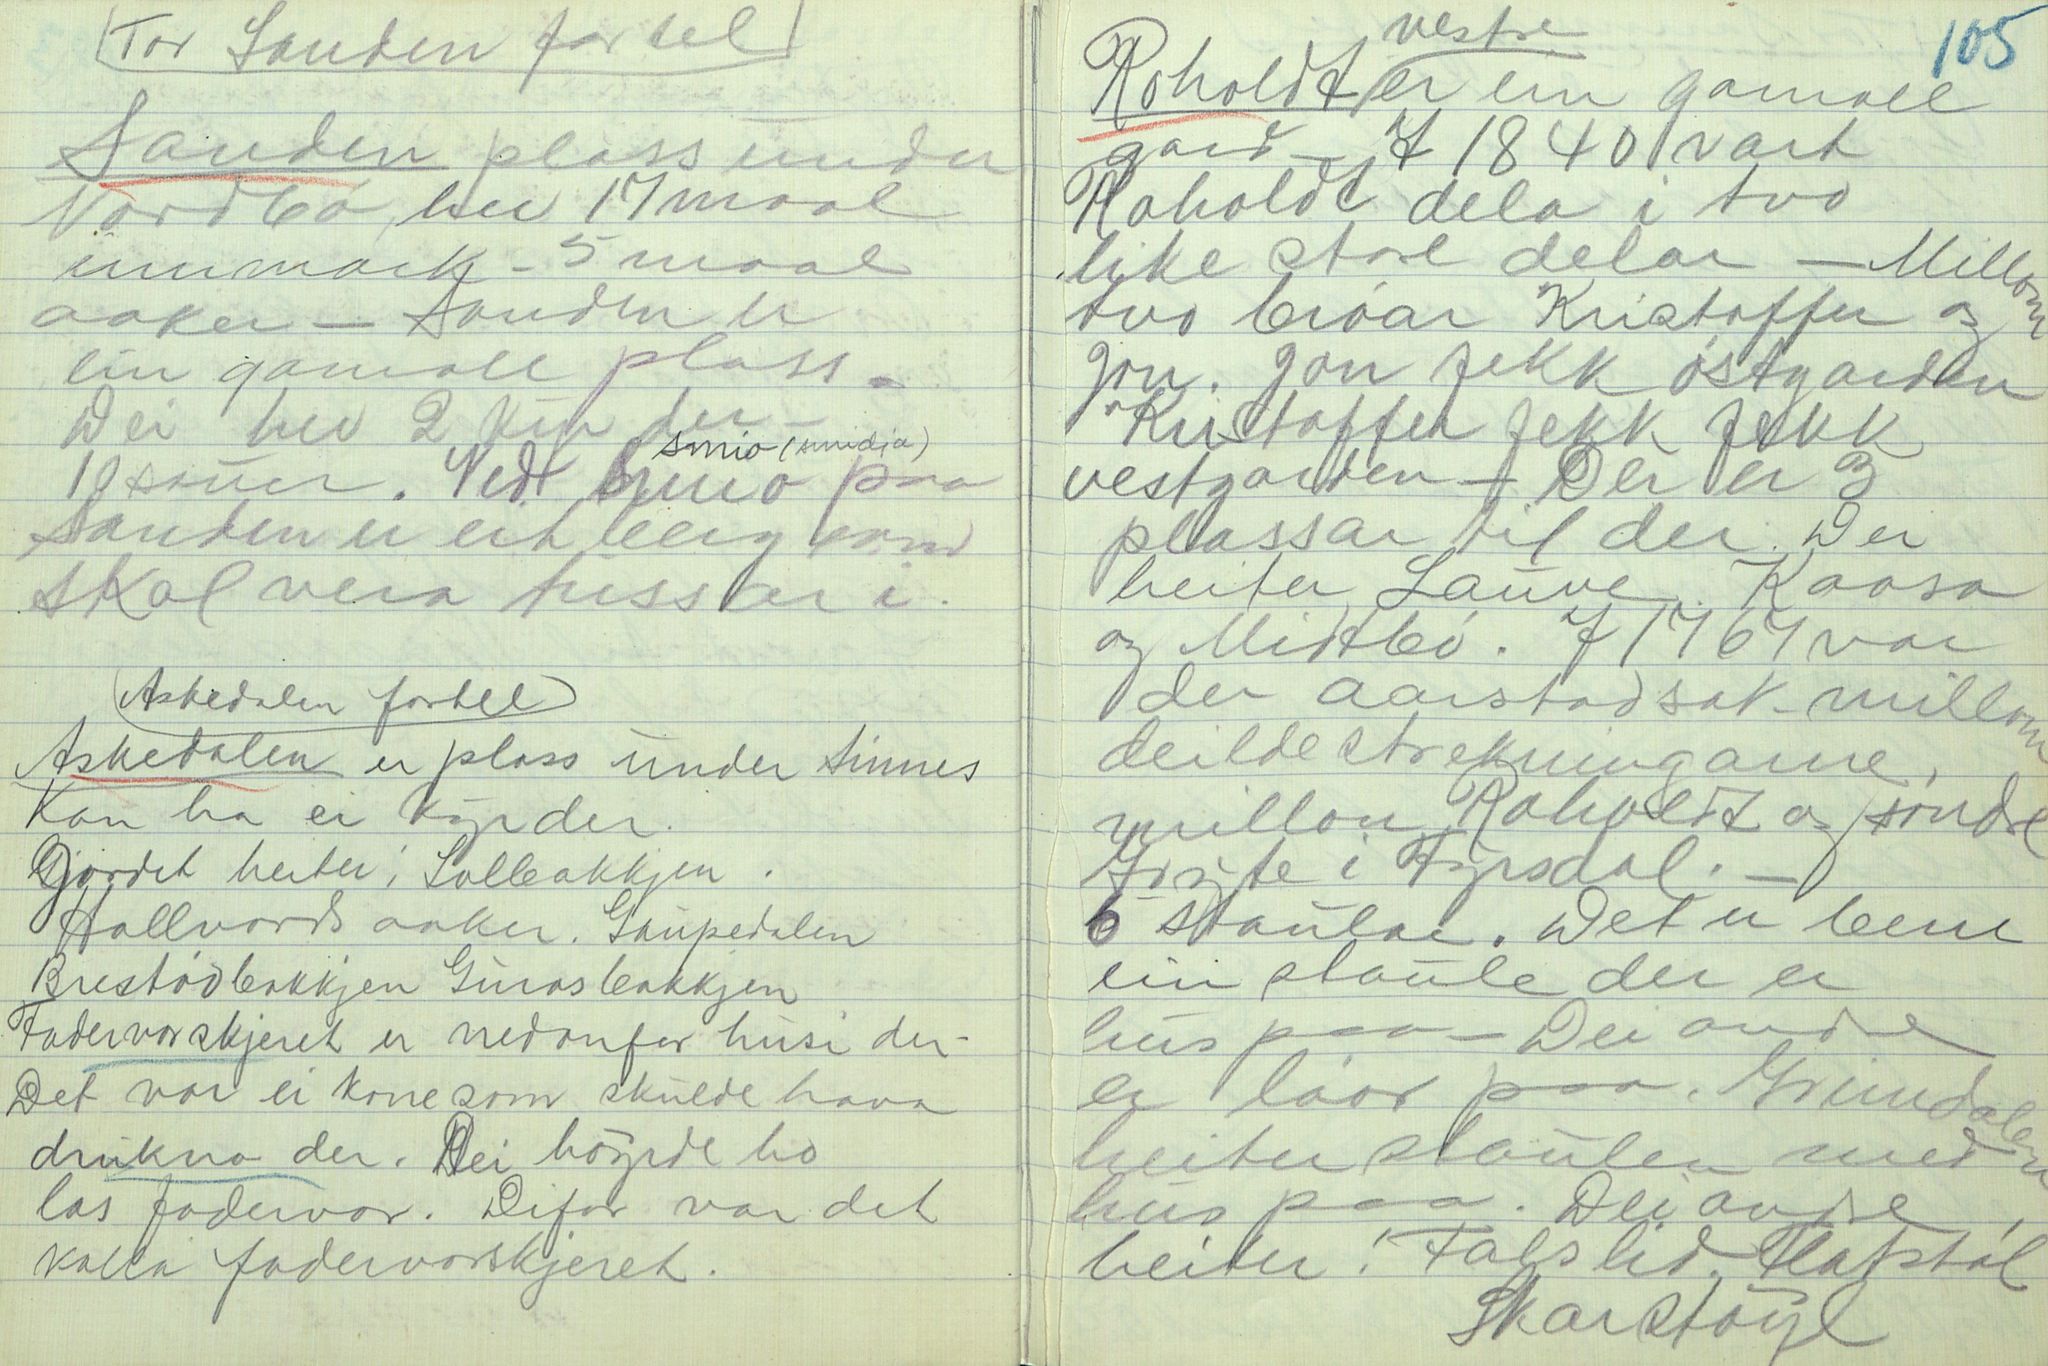 Tor Sanden fortel
Sanden plass under
Nordbö, hev 17 maal
innmark - 5 maal
aaker - Sanden er
ein gamall plass.
Dei hev 2 kyr der -
smio (smidja)
10 sauer. Vedt smio paa
Sanden er eit berg som
skal vera tussar i.
Askedalen fortel
Askedalen er plass under Sinnes
Kan ha ei kyr der.
Gjordet heiter; Solbakkjen.
Hallvards aaker. Gaupedalen
Brestödbakkjen Gurosbakkjen
Fadervorskjeret er nedanfor husi der -
Det var ei kone som skulde hava
drukna der. Dei höyrde ho
las fadervor. Difor var det
kalla fadervorskjeret.
105
vestre
Roholdt er ein gamall
gard - I 1840 vart
Roholdt dela i tvo
like store delar - Millom
tvo bröar Kristoffer og
Jon. Jon fekk östgarden
Kristoffer fekk fekk
vestgarden - Der er 3
plassar til der. Der
heiter Lauve. Kaasa
og Midtbö. I 1767 var
der aarstadsak millom
deildestrekningarne,
millom Roholdt og söndre
i Fyrsdal. -
6 staular. Det er bere
ein staule der er
hus paa - Dei andre
er löor paa. Grimdalen
heiter staulen med
hus paa. Dei andre
heiter! Falslid. Flatstöl
Skarstöyl